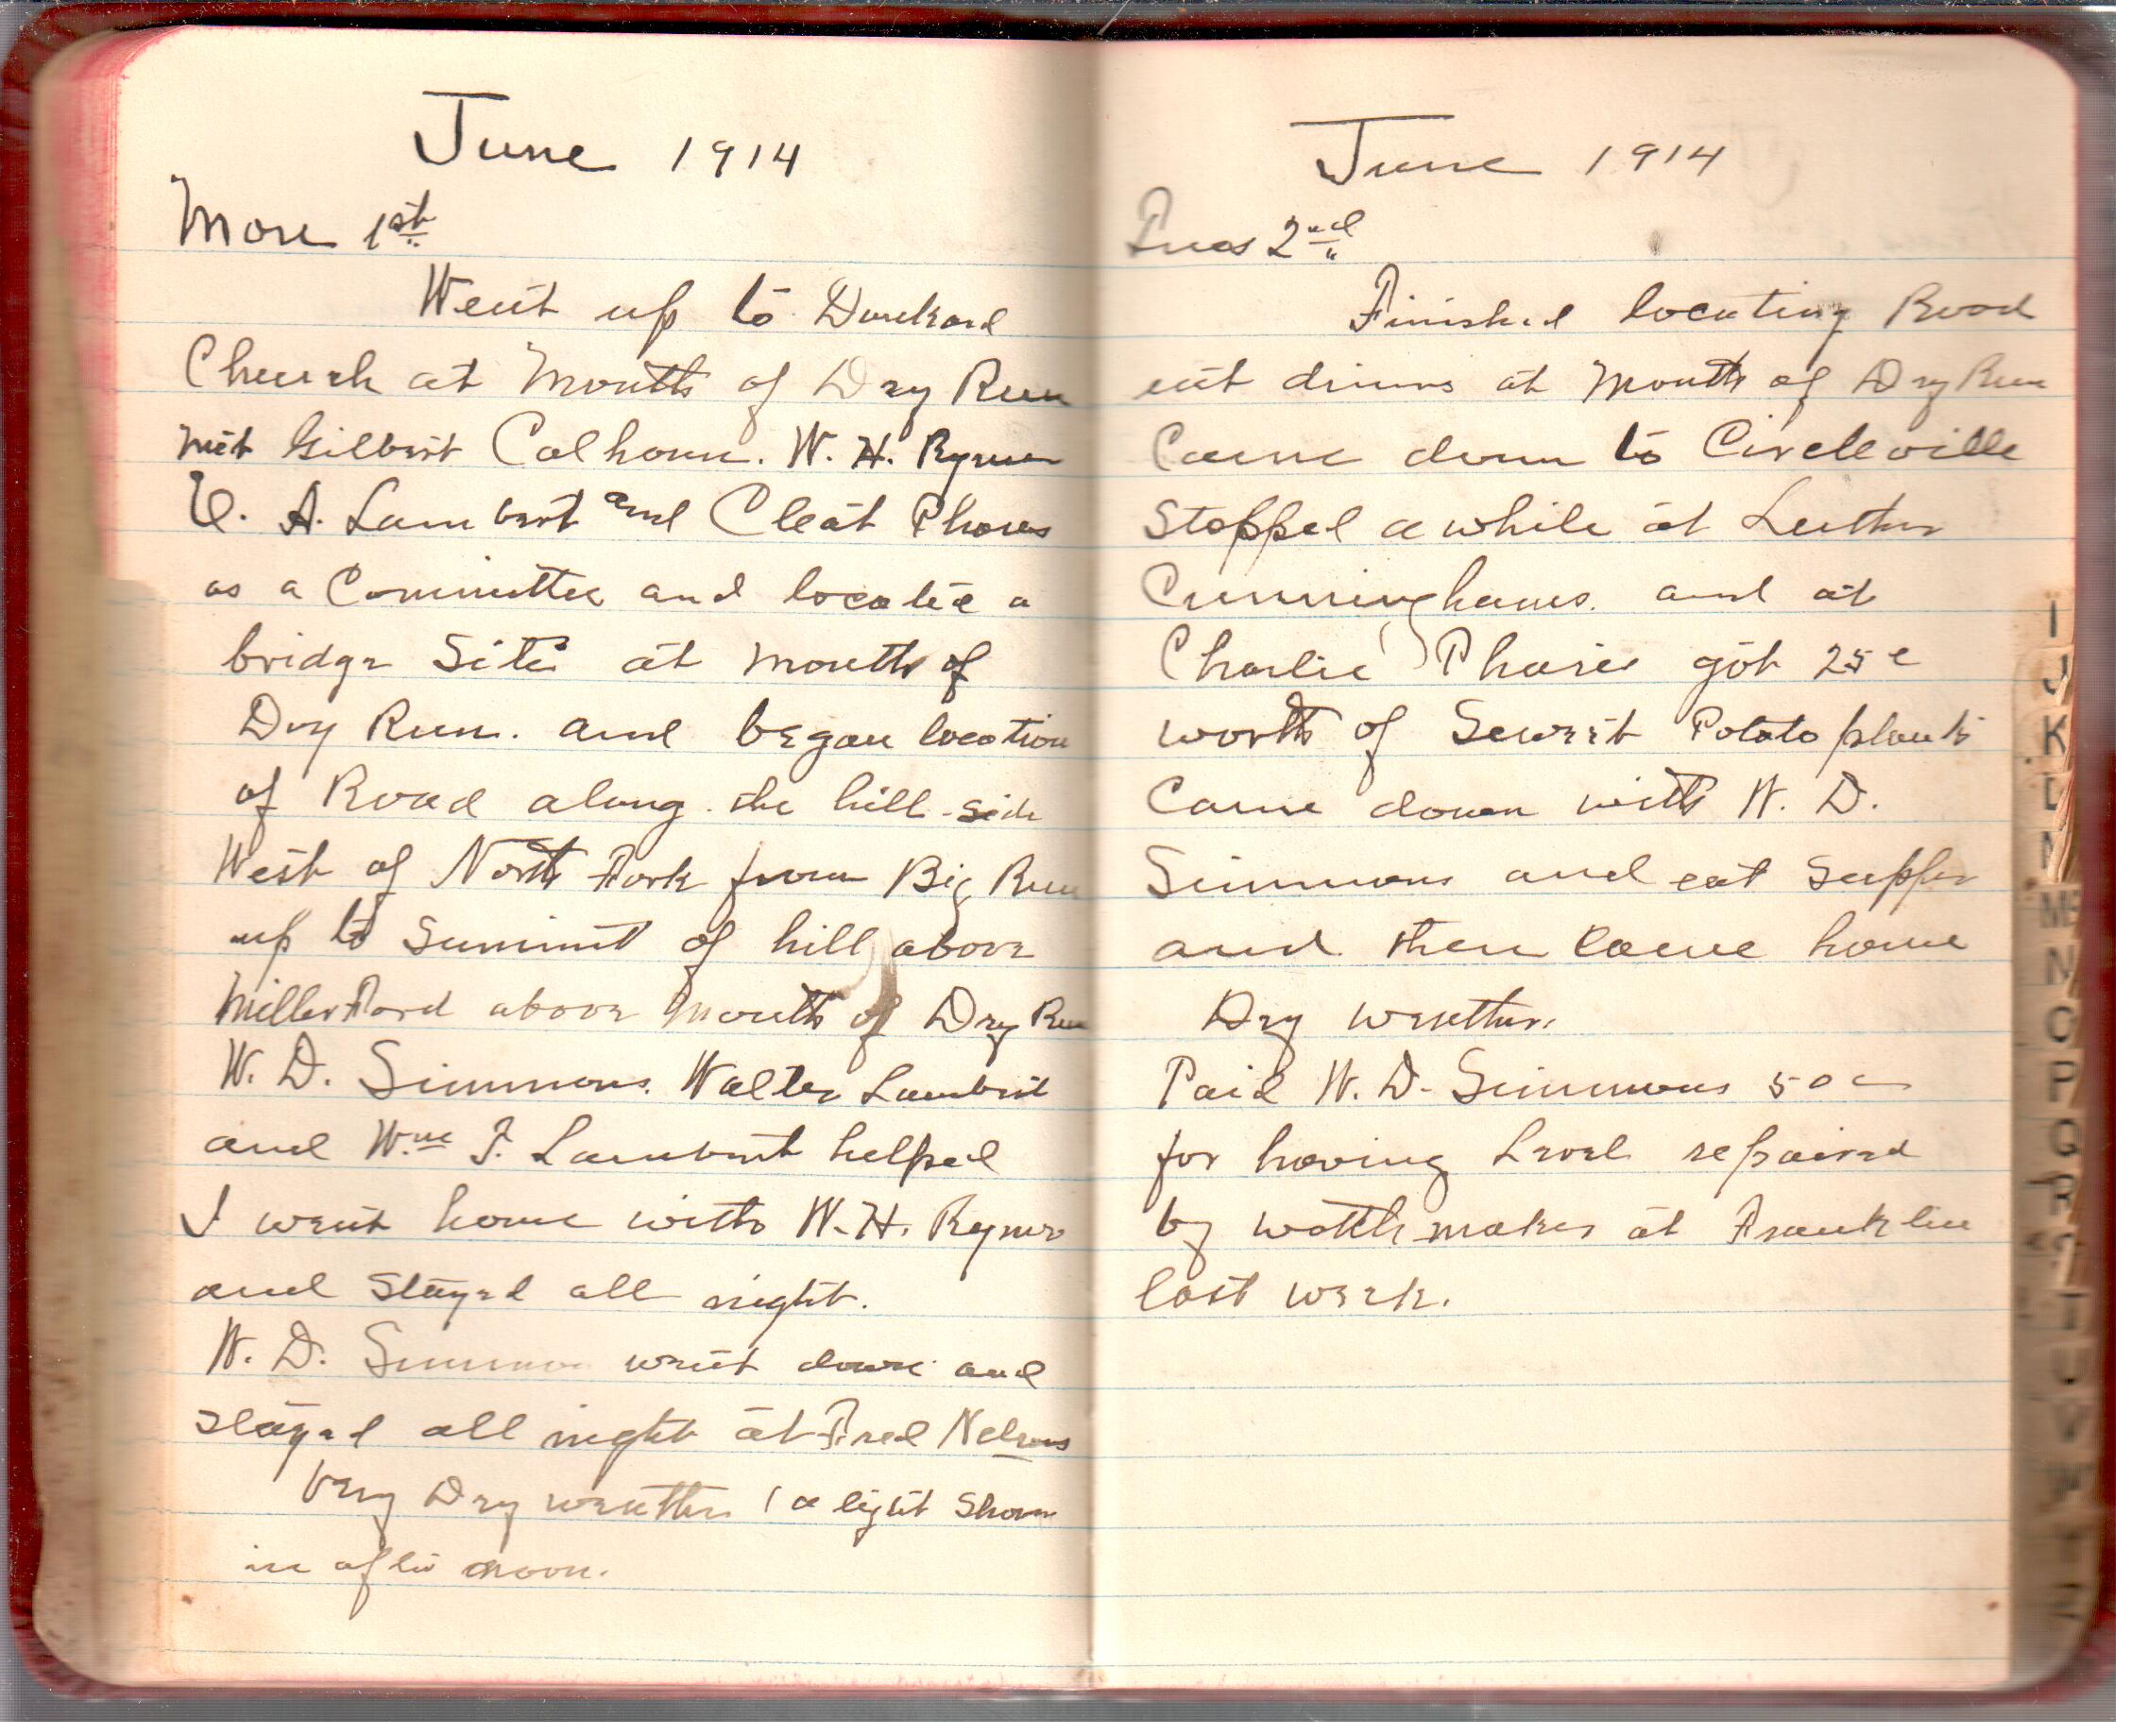 June 1914
Mon 1st
Went up to Dunkard
Church at Mouth of Dry Run
met Gilbert Calhoun. W. H. Rymer
A. Lambert and Cleat Phares
as a Committee and locate a
bridge Site at Mouth of
Dry Run. and began location
of Road along the hill-side
West of North Fork from Big Run
up to Summit of hill above
Miller Ford above Mouth of Dry Run
W. D. Simmons. Walter Lambert
and Wm F. Lambert helped
I went home with W. H. Rymer
and Stayed all night.
W. D. Simmons went down and
Stayed all night at Fred Nelsons
Very Dry weather ( a light Shower
in after noon.
June 1914
Tues 2nd
Finished locating Road
eat dinner at Mouth of Dry Run
Came down to Circleville
Stopped a while at Luther
Cunninghams. and at
Charlie Phares got 25c
worth of Sweet Potato plants
Came down with W. D.
Simmons and eat Supper
and then came home
Dry weather.
Paid W. D. Simmons 50c
for having Level repaired
by watch maker at Franklin
last week.
I
J
K
L
M
Mc
N
O
P
Q
R
S
T
U
V
W